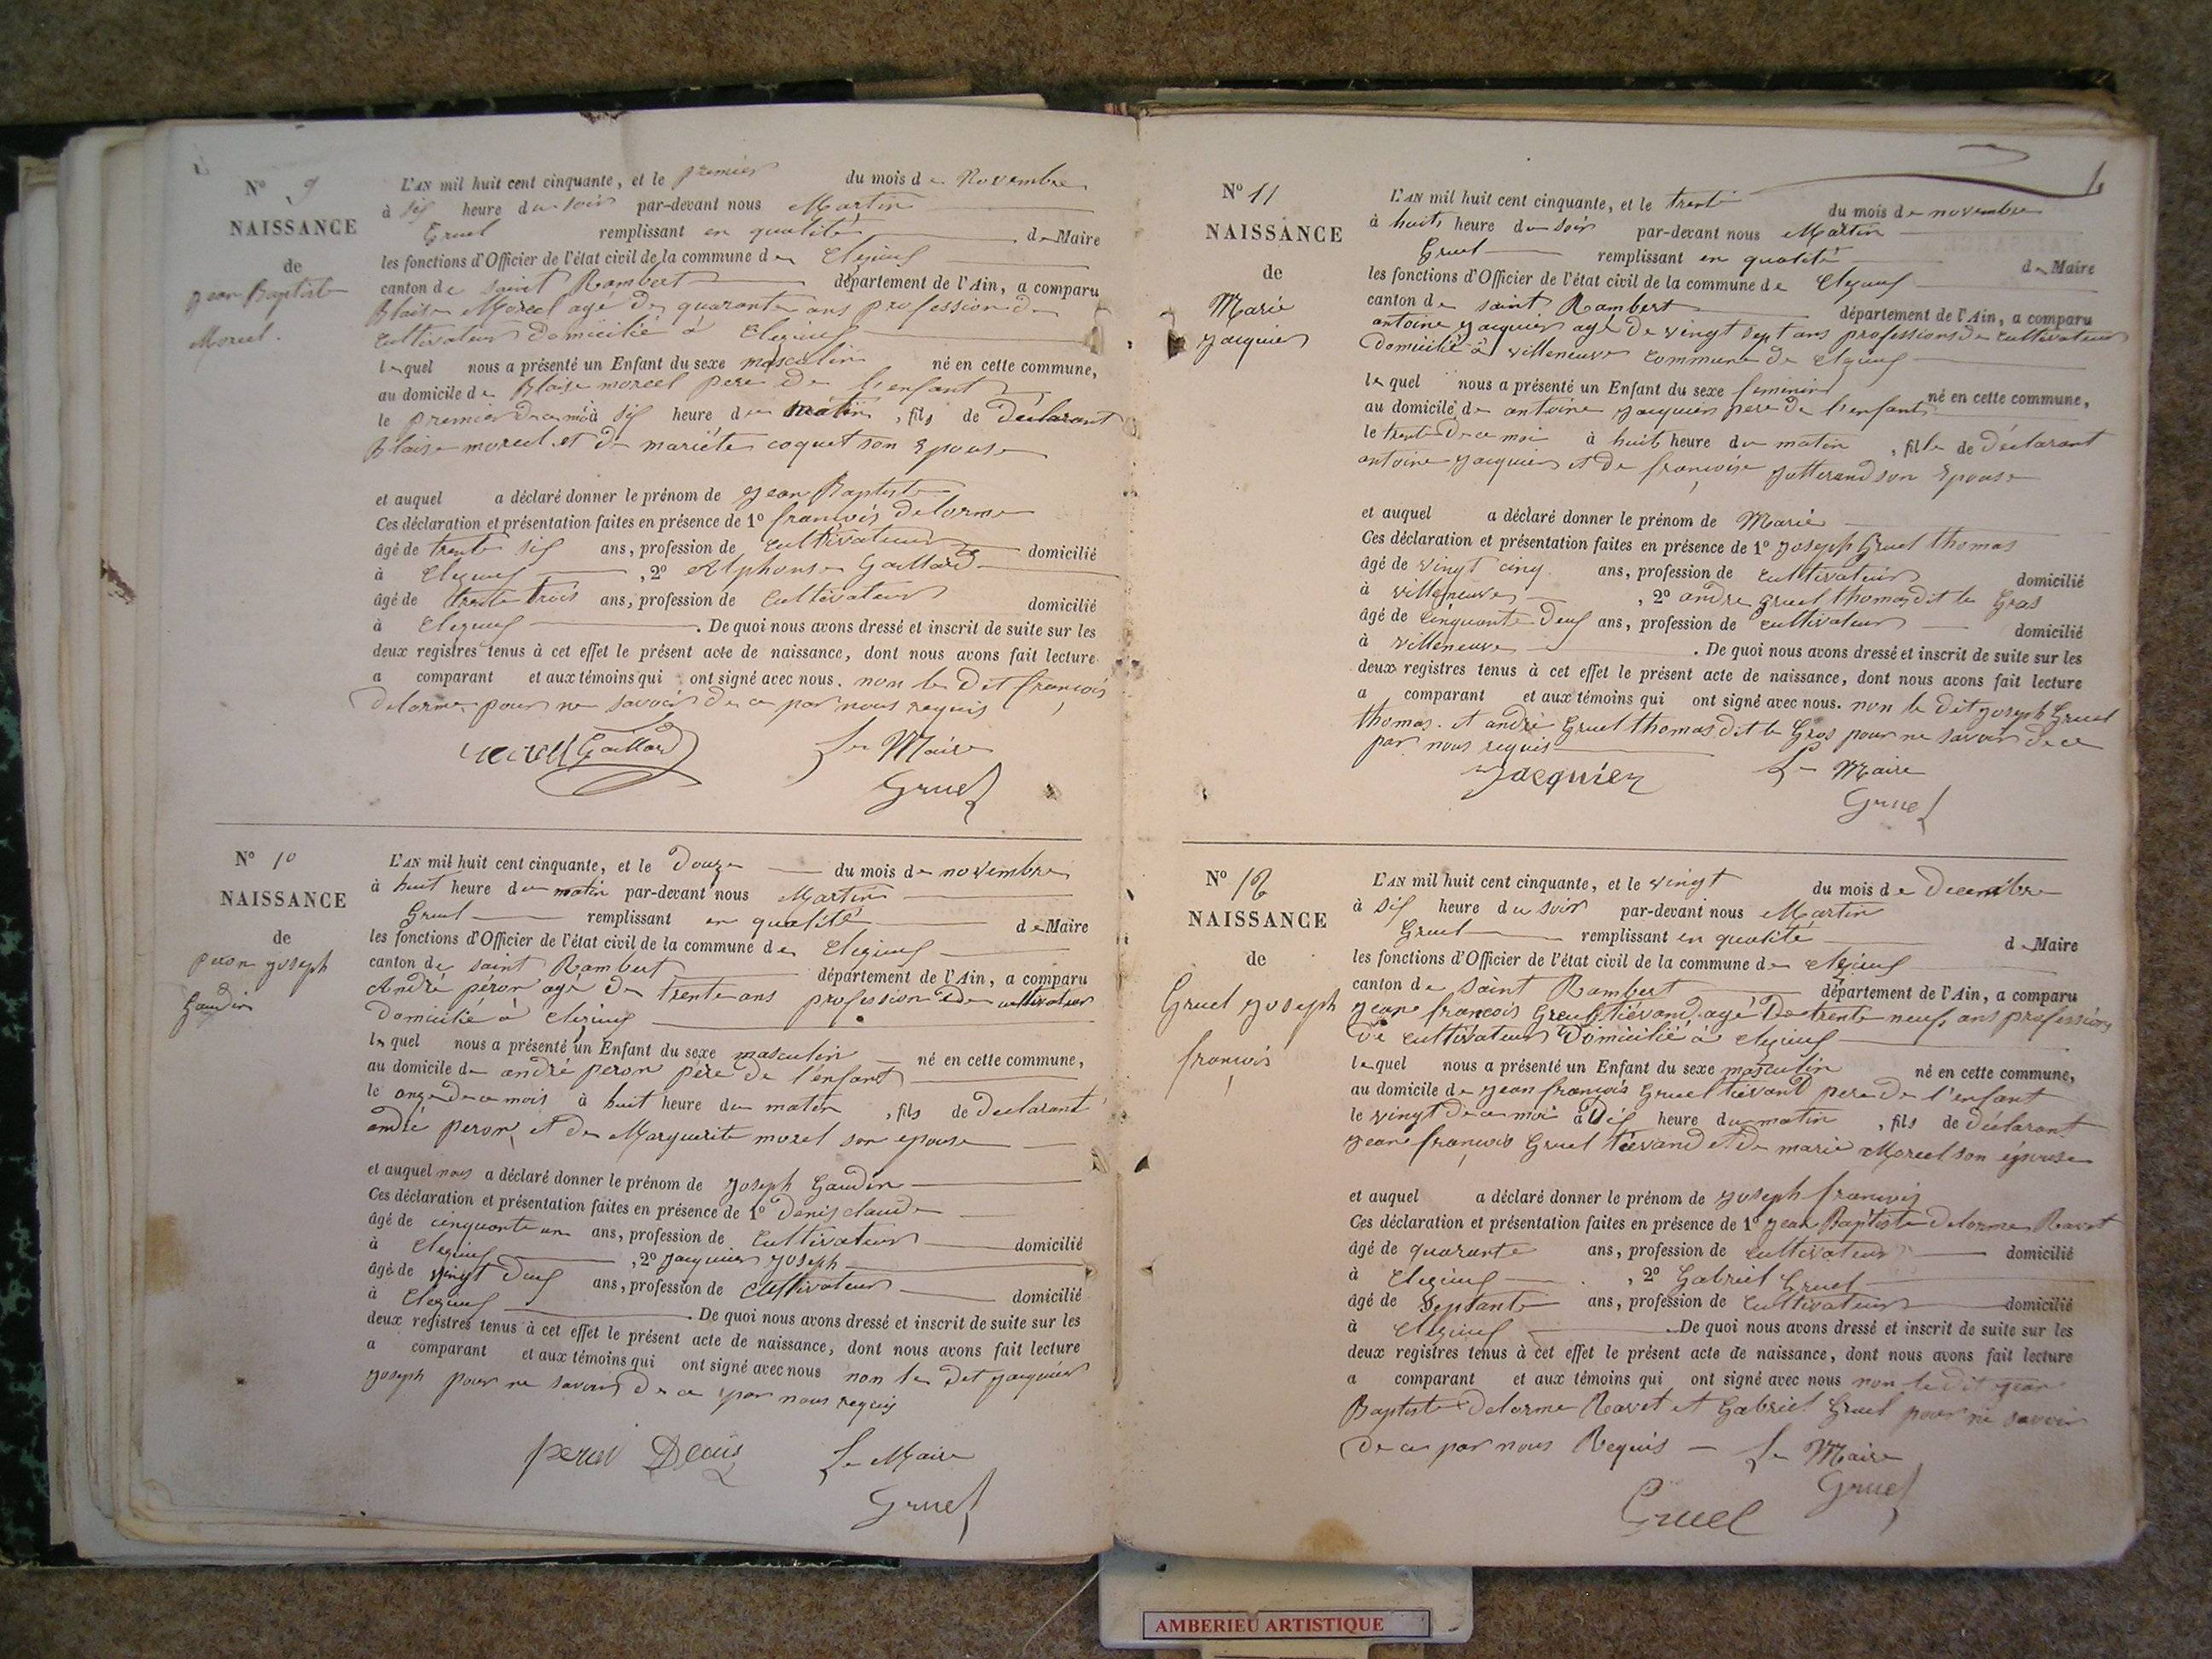 N° 9
NAISSANCE
de
jean Baptiste
Morcel.
L'AN mil huit cent cinquante, et le premier du mois de Novembre
à six heure du soir par-devant nous Martin
Gruel remplissant en qualité de Maire
les fonctions d'Officier de l'état civil de la commune de Cleyzieux
canton de saint Rambert département de l'Ain, a comparu
Blaise Morcel agé de quarante ans profession de
cultivateur domicilié à Cleyzieux
lequel nous a présenté un Enfant du sexe masculin né en cette commune,
au domicile de Blaise morcel pere de l'enfant
le premier de ce moi à six heure du matin, fils de déclarant
Blaise morcel et de mariéte coquet son Epouse
et auquel a déclaré donner le prénom de jean Baptiste
Ces déclaration et présentation faites en présence de 1° françois delorme
âgé de trente six ans, profession de cultivateur domicilié
à , 2° Alphonse Gaillard
âgé de trente trois ans, profession de cultivateur domicilié
à . De quoi nous avons dressé et inscrit de suite sur les
deux registres tenus à cet effet le présent acte de naissance, dont nous avons fait lecture
a comparant et aux témoins qui ont signé avec nous. non le dit françois
delorme pour ne savoir de ce par nous requis
Gaillard Le Maire
Gruel
N° 10
NAISSANCE
de
peron joseph
Gaudin
L'AN mil huit cent cinquante, et le douze du mois de novembre
à huit heure du matin par-devant nous Martin
Gruel remplissant en qualité de Maire
les fonctions d'Officier de l'état civil de la commune de
canton de saint Rambert département de l'Ain, a comparu
André péron agé de trente ans profession de cultivateur
domicilié à
lequel nous a présenté un Enfant du sexe masculin né en cette commune,
au domicile de andré peron père de l'enfant
le onze de ce mois à huit heure du matin, fils de declarant
andré peron et de Marguerite morel son epouse
et auquel nous a déclaré donner le prénom de joseph Gaudin
Ces déclaration et présentation faites en présence de 1° Denis claude
âgé de cinquante un ans, profession de cultivateur domicilié
à , 2° jacquier joseph
âgé de vingt deux ans, profession de cultivateur domicilié
à . De quoi nous avons dressé et inscrit de suite sur les
deux registres tenus à cet effet le présent acte de naissance, dont nous avons fait lecture
a comparant et aux témoins qui ont signé avec nous non le dit jacquier
joseph pour ne savoir de ce par nous requis
peron Denis Le Maire
Gruel
N° 11
NAISSANCE
de
Marie
jacquier
L'AN mil huit cent cinquante, et le trente du mois de novembre
à huit heure du soir par-devant nous Martin
Gruel remplissant en qualité de Maire
les fonctions d'Officier de l'état civil de la commune de
canton de saint Rambert département de l'Ain, a comparu
antoine jacquier agé de vingt sept ans profession de cultivateur
domicilié à villeneuve commune de
lequel nous a présenté un Enfant du sexe feminin né en cette commune,
au domicile de antoine jacquier pere de l'enfant
le trente de ce moi à huit heure du matin, fille de déclarant
antoine jacquier et de françoise jutterand son Epouse
et auquel a déclaré donner le prénom de Marie
Ces déclaration et présentation faites en présence de 1° joseph Gruel thomas
âgé de vingt cinq ans, profession de cultivateur domicilié
à villeneuve , 2° andre gruel thomas dit le Gros
âgé de cinquante deux ans, profession de cultivateur domicilié
à villeneuve . De quoi nous avons dressé et inscrit de suite sur les
deux registres tenus à cet effet le présent acte de naissance, dont nous avons fait lecture
a comparant et aux témoins qui ont signé avec nous. non le dit joseph Gruel
thomas. et andré Gruel thomas dit le Gros pour ne savoir de ce
par nous requis
Jacquier Le Maire
Gruel
N° 12
NAISSANCE
de
Gruel joseph
françois
L'AN mil huit cent cinquante, et le vingt du mois de Decembre
à six heure du soir par-devant nous Martin
Gruel remplissant en qualité de Maire
les fonctions d'Officier de l'état civil de la commune de
canton de saint Rambert département de l'Ain, a comparu
jean françois Gruel tiévand agé de trente neuf ans profession
de cultivateur domicilié à
lequel nous a présenté un Enfant du sexe masculin né en cette commune,
au domicile de jean françois Gruel tievand pere de l'enfant
le vingt de ce moi à dix heure du matin, fils de déclarant
jean françois Gruel tievand et de marie Morcel son épouse
et auquel a déclaré donner le prénom de joseph françois
Ces déclaration et présentation faites en présence de 1° jean Baptiste delorme Ravet
âgé de quarante ans, profession de cultivateur domicilié
à , 2° Gabriel Gruel
âgé de septante ans, profession de cultivateur domicilié
à . De quoi nous avons dressé et inscrit de suite sur les
deux registres tenus à cet effet le présent acte de naissance, dont nous avons fait lecture
a comparant et aux témoins qui ont signé avec nous non le dit jean
Baptiste delorme Ravet et Gabriel Gruel pour ne savoir
de ce par nous Requis Le Maire
Gruel
Gruel
AMBERIEU ARTISTIQUE